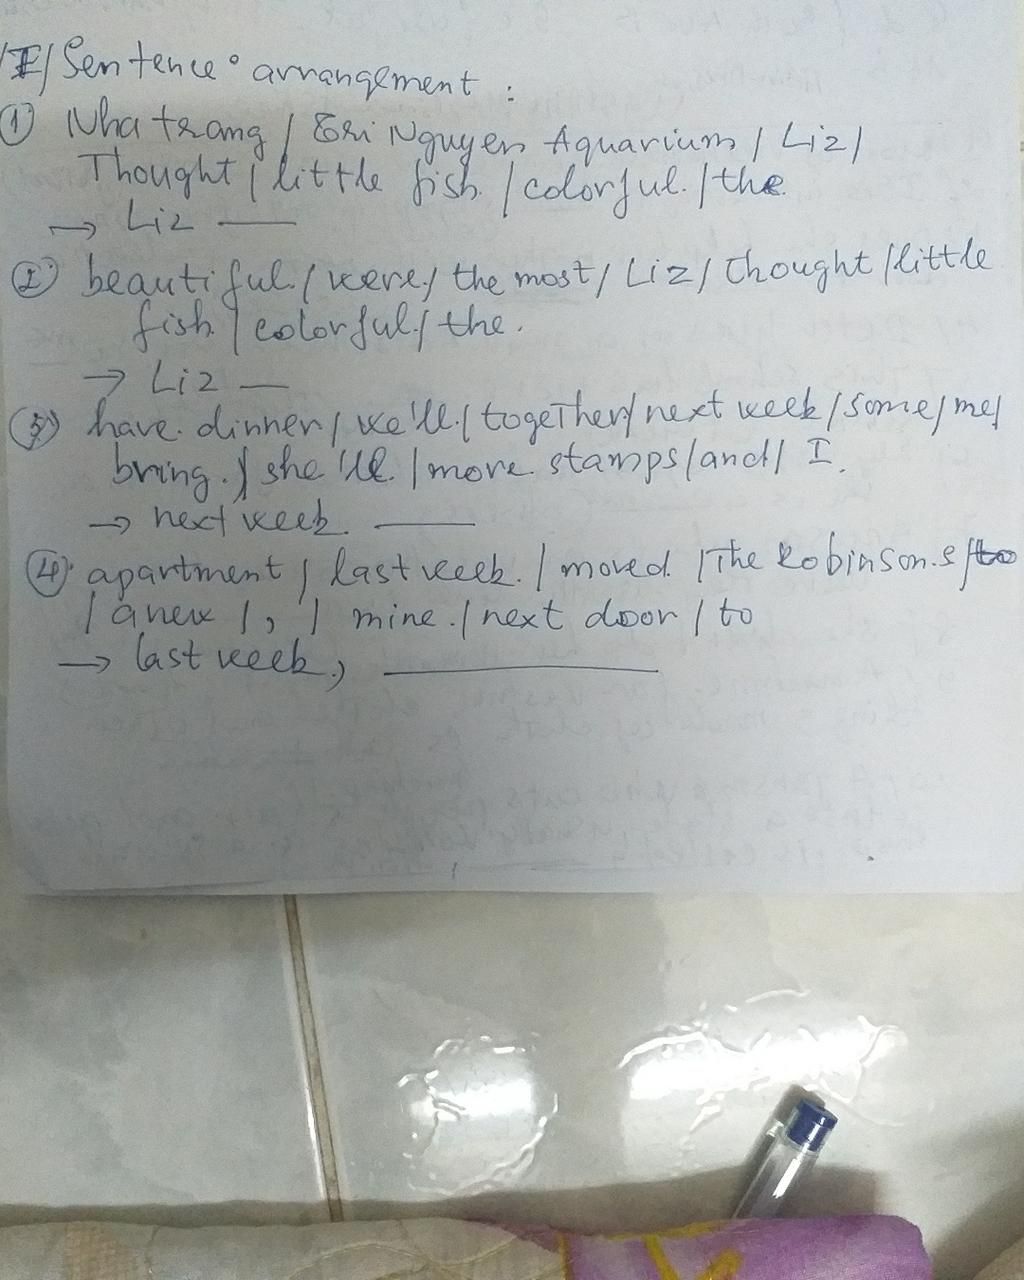 I/ Sentence arrangement :
① Nha trang / Tri Nguyen Aquarium / Liz /
Thought / little fish / colorful. / the
→ Liz ___
② beautiful. / were / the most / Liz / thought / little
fish / colorful. / the.
→ Liz ___
③ have dinner / we'll. / together / next week / some / me /
bring. / she'll. / more stamps / and / I.
→ next week. ___
④ apartment / last week. / moved / The Robinson.s / to
/ a new / , / mine. / next door / to
→ last week, ___